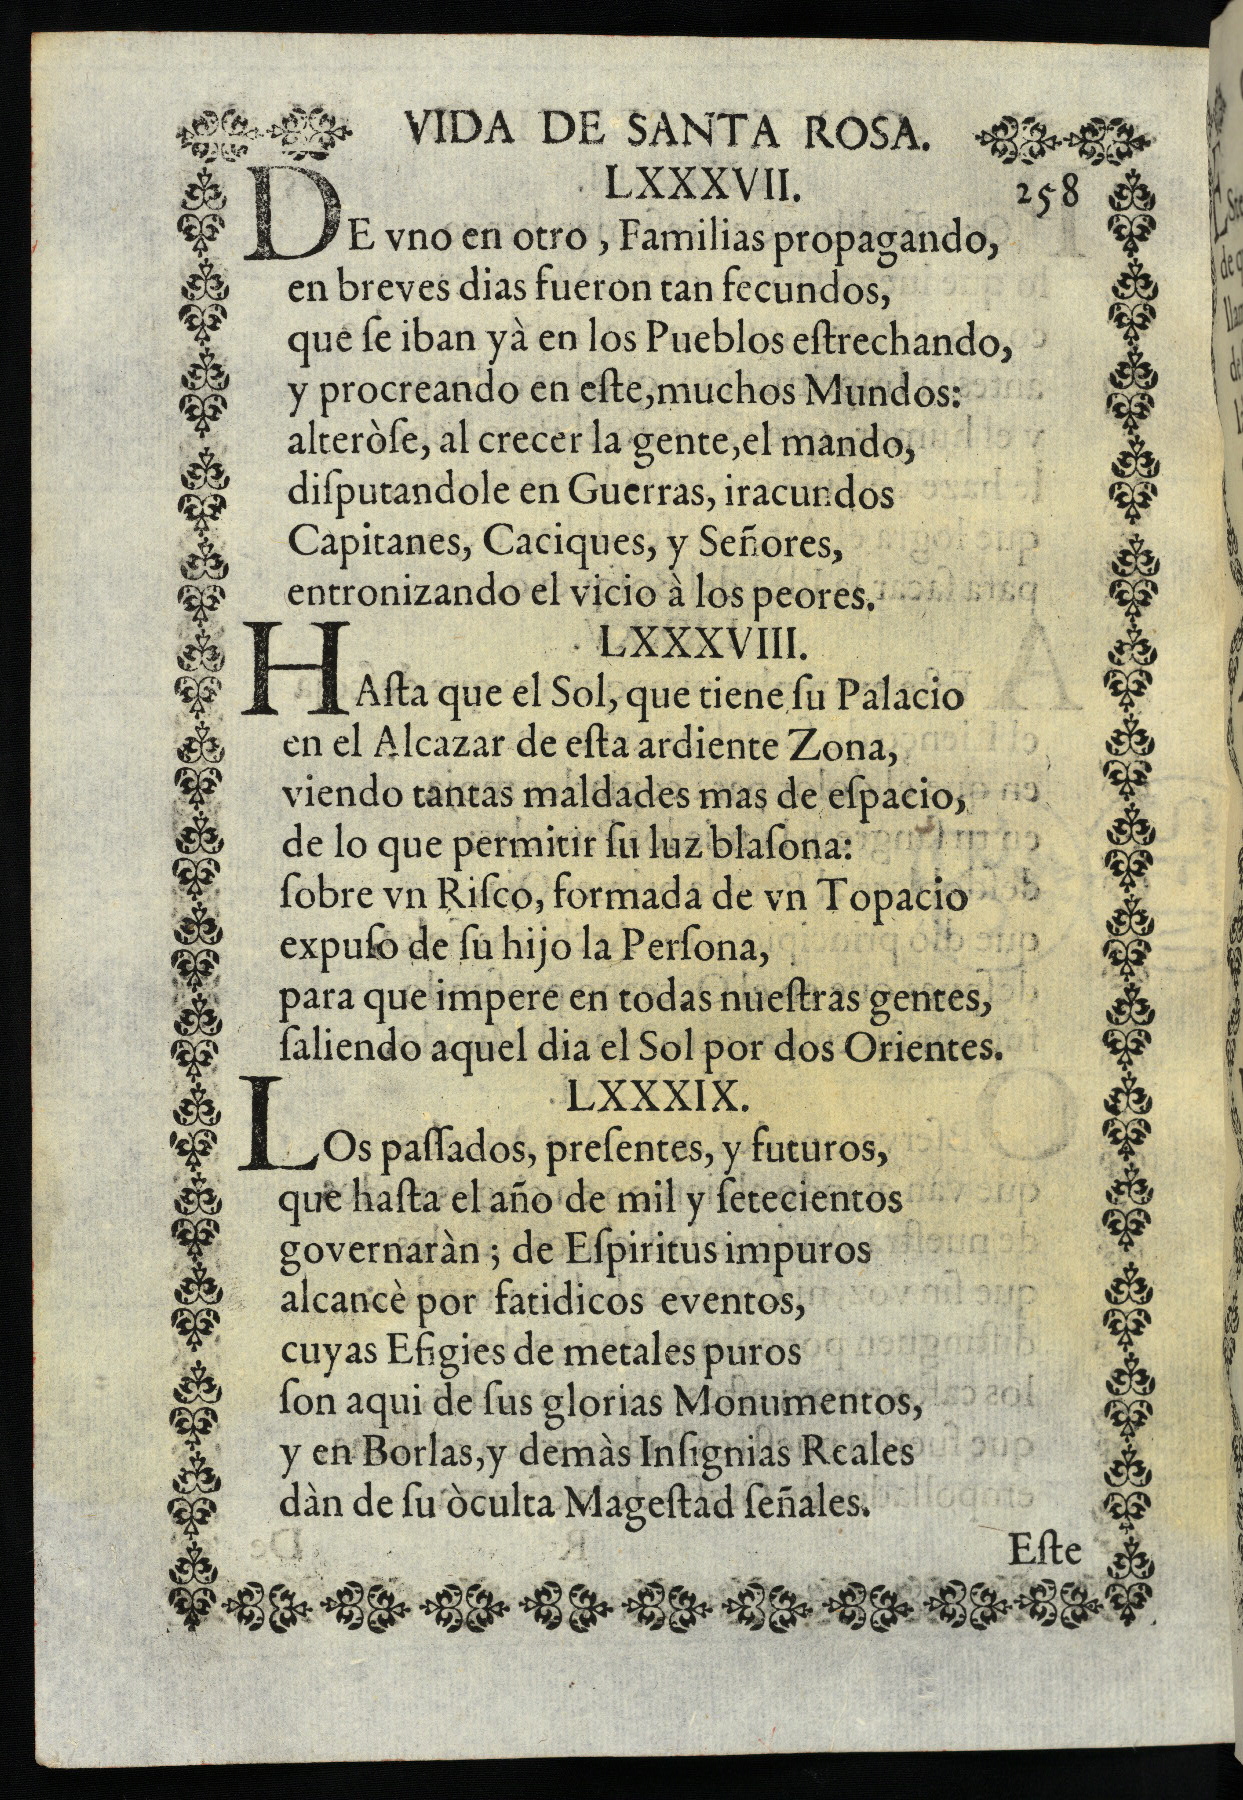 VIDA DE SANTA ROSA.
LXXXVII. 258
DE vno en otro, Familias propagando,
en breves dias fueron tan fecundos,
que ſe iban yà en los Pueblos eſtrechando,
y procreando en eſte, muchos Mundos:
alteròſe, al crecer la gente, el mando,
diſputandole en Guerras, iracundos
Capitanes, Caciques, y Señores,
entronizando el vicio à los peores.
LXXXVIII.
HAſta que el Sol, que tiene ſu Palacio
en el Alcazar de eſta ardiente Zona,
viendo tantas maldades mas de eſpacio,
de lo que permitir ſu luz blaſona:
ſobre vn Riſco, formada de vn Topacio
expuſo de ſu hijo la Perſona,
para que impere en todas nueſtras gentes,
ſaliendo aquel dia el Sol por dos Orientes.
LXXXIX.
LOs paſſados, preſentes, y futuros,
que haſta el año de mil y ſetecientos
governaràn; de Eſpiritus impuros
alcancè por fatidicos eventos,
cuyas Efigies de metales puros
ſon aqui de ſus glorias Monumentos,
y en Borlas, y demàs Inſignias Reales
dàn de ſu òculta Mageſtad ſeñales.
Eſte